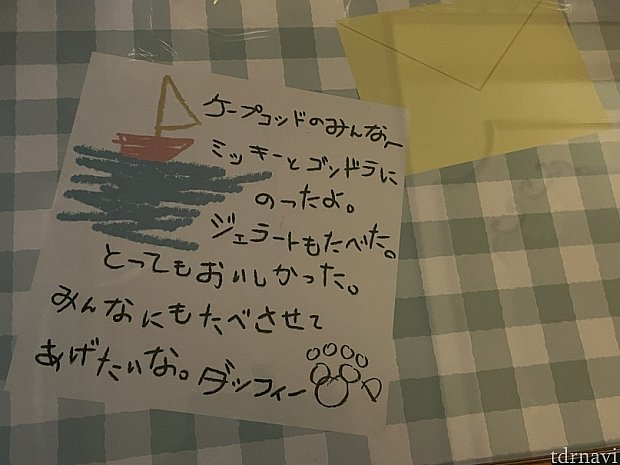 ケープコッドのみんなへ
ミッキーとゴンドラに
のったよ。
ジェラートもたべた。
とってもおいしかった。
みんなにもたべさせて
あげたいな。ダッフィー
tdrnavi